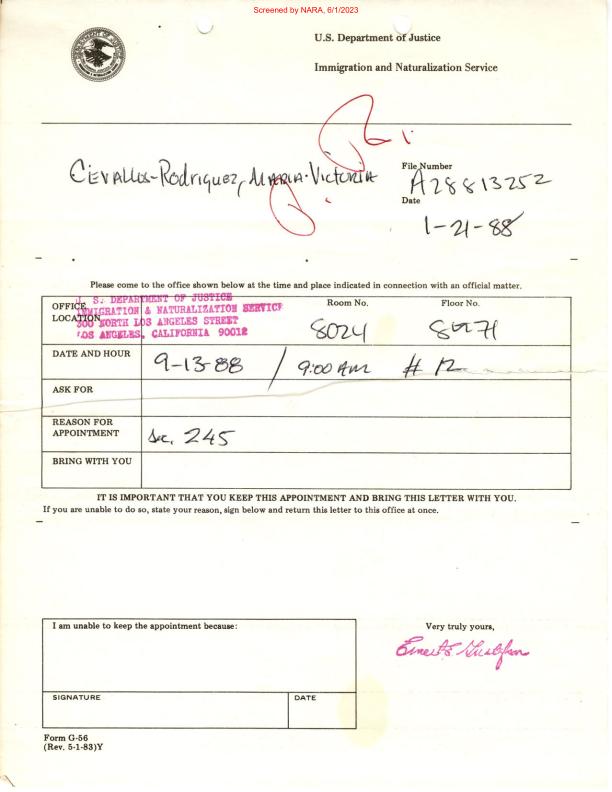 Screened by NARA, 6/1/2023
U.S. Department of Justice
Immigration and Naturalization Service
Cevallos-Rodriguez, Maria-Victoria
File Number
A28813252
Date
1-21-88
Please come to the office shown below at the time and place indicated in connection with an official matter.
OFFICE LOCATION
U. S. DEPARTMENT OF JUSTICE
IMMIGRATION & NATURALIZATION SERVICE
300 NORTH LOS ANGELES STREET
LOS ANGELES, CALIFORNIA 90012
Room No.
8024
Floor No.
DATE AND HOUR
9-13-88 / 9:00 AM # 12
ASK FOR
REASON FOR
APPOINTMENT
Sec. 245
BRING WITH YOU
IT IS IMPORTANT THAT YOU KEEP THIS APPOINTMENT AND BRING THIS LETTER WITH YOU.
If you are unable to do so, state your reason, sign below and return this letter to this office at once.
I am unable to keep the appointment because:
Very truly yours,
Ernest E. Gustafson
SIGNATURE
DATE
Form G-56
(Rev. 5-1-83)Y